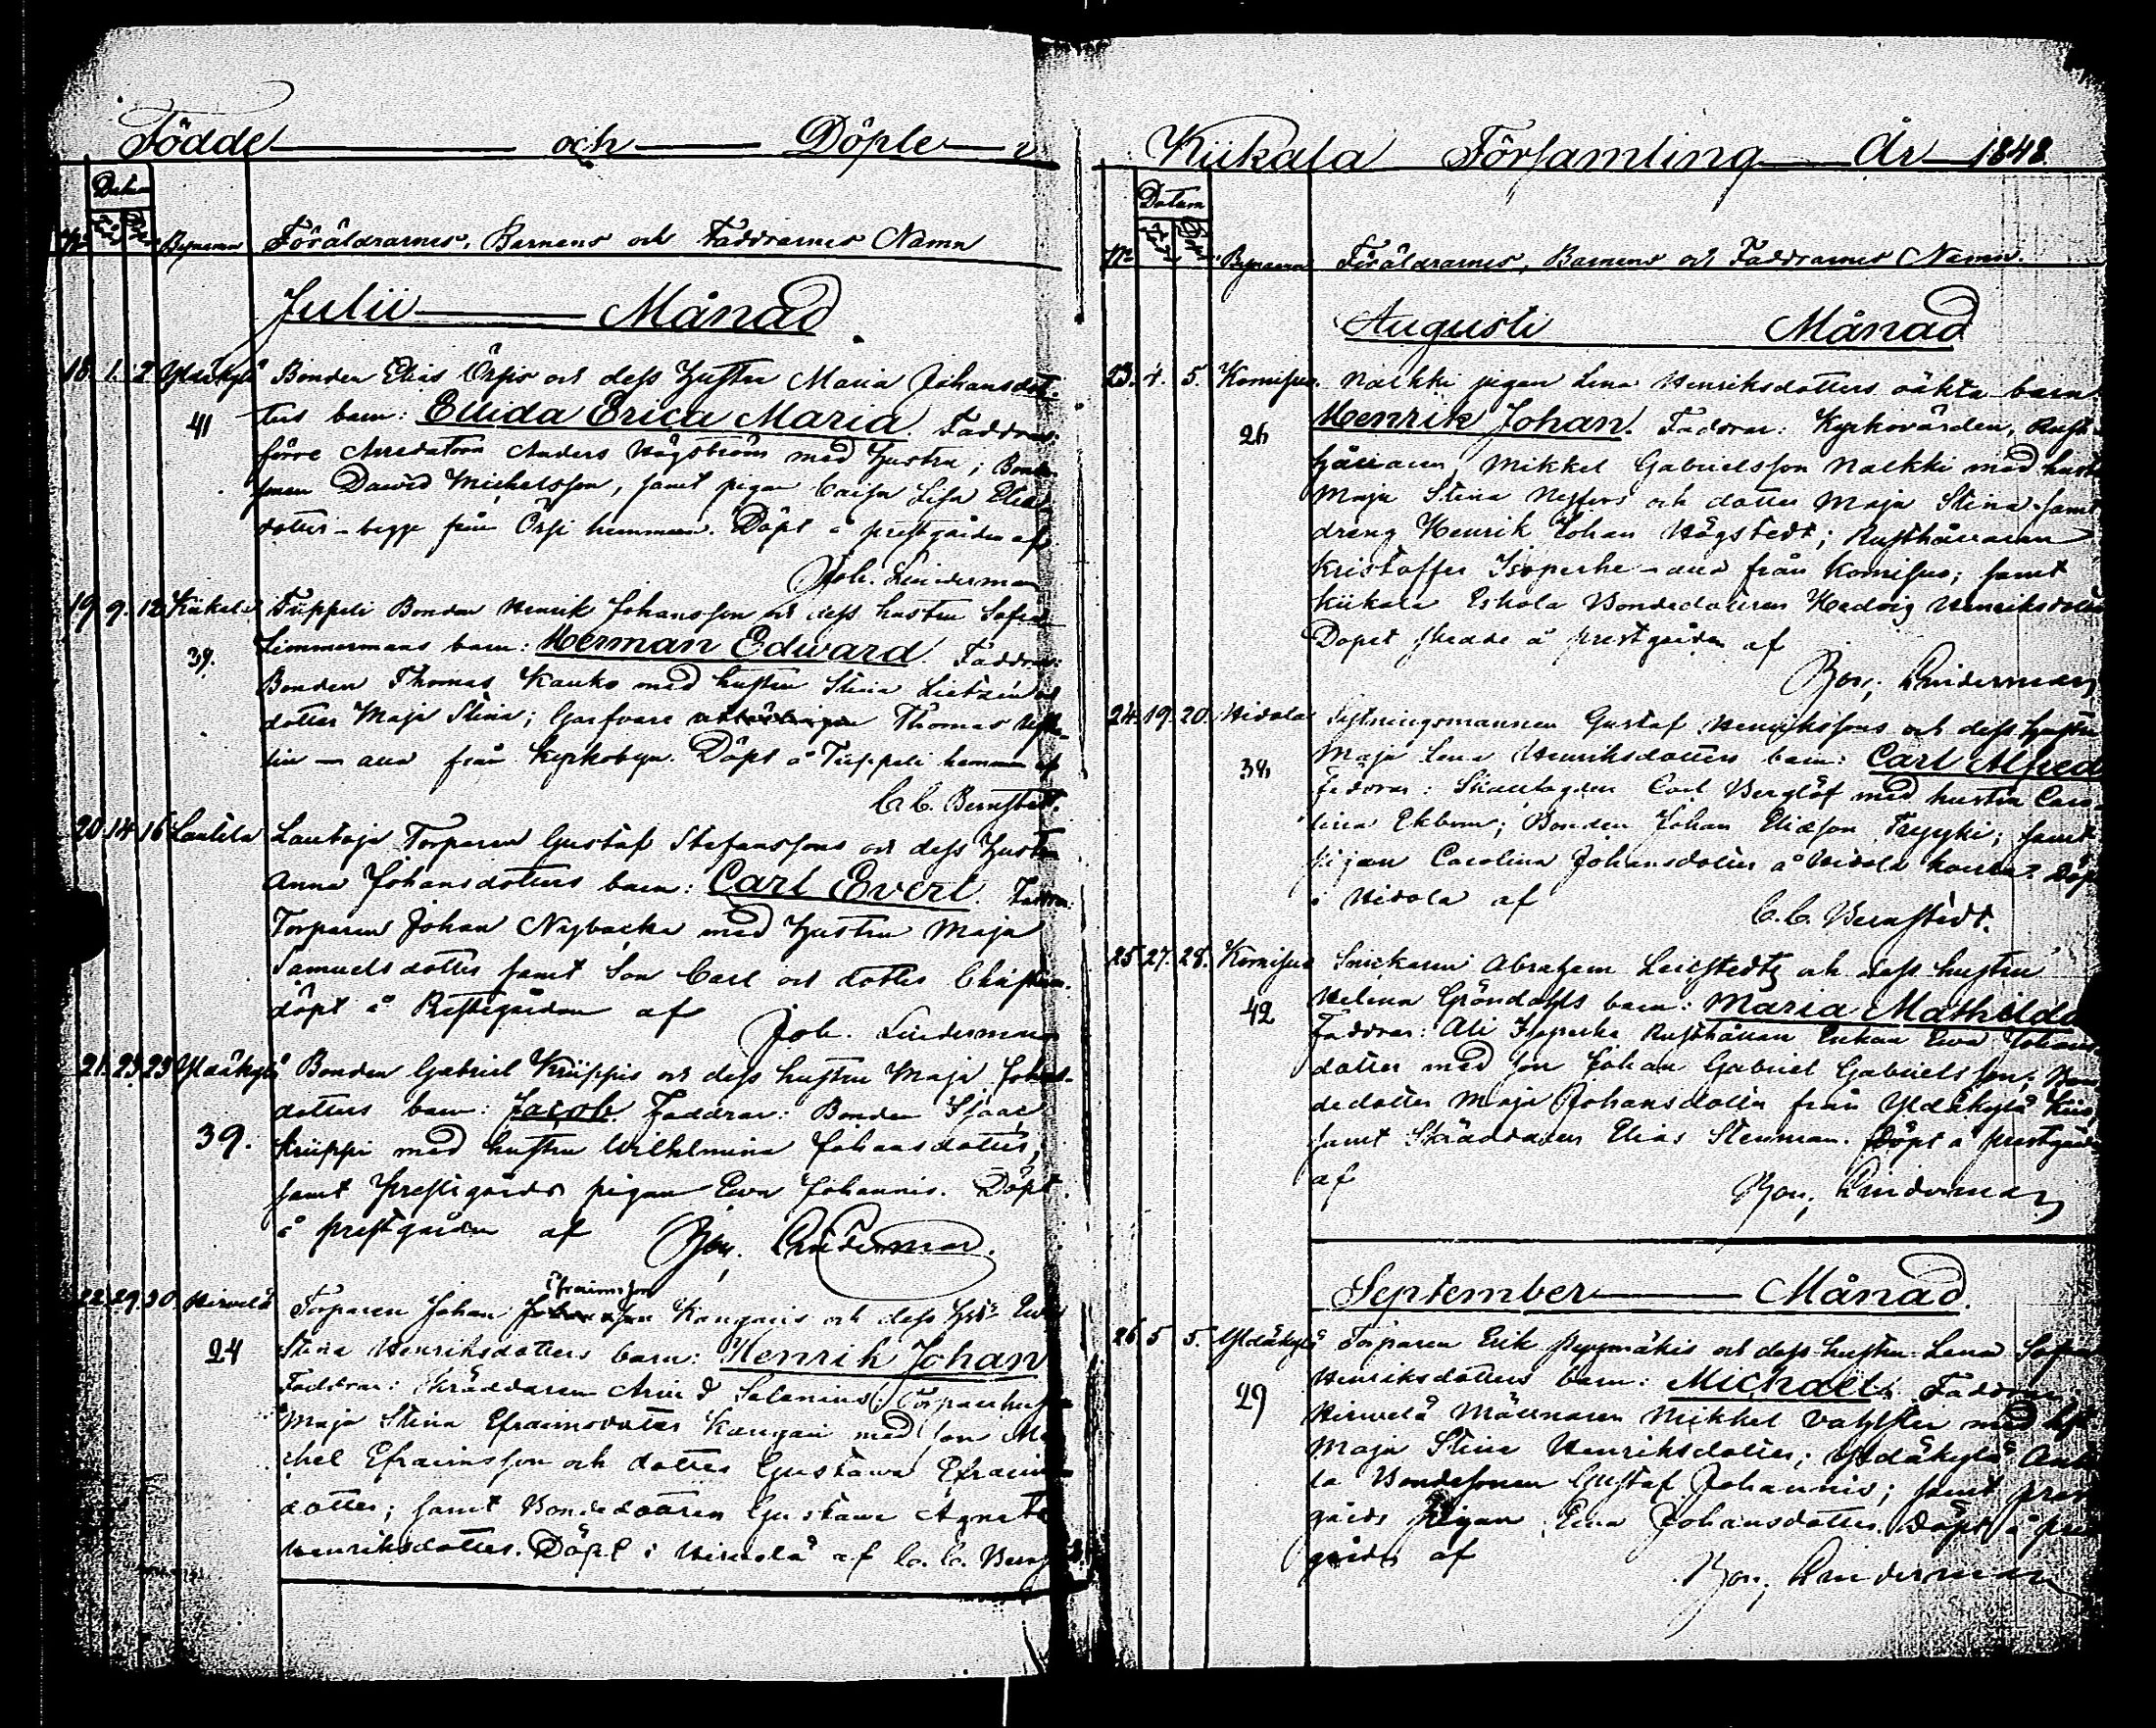 Födde och Döpte i
Datum
No Bynamn Föräldrarnes, Barnens och Faddrarnes Namn
Julii Månad
18. 1. 2 Yldäkylä Bonden Elias Örsis och dess Hustru Maria Johansdot-
41 ters barn: Ellida Erica Maria. Faddrar:
förre Arrendatorn Anders Högström med Hustru; Bonde-
sonen Dawid Michelsson, samt pigan Caisa Lisa Elias
dotter - begge från Örsi hemman. Döpt å prestgården af
Joh. Linderman
19 9. 12 Kiikala Tuppeli Bonden Henrik Johansson och dess hustru Sofia
39. Limmermans barn: Herman Edward. Faddrar:
Bonden Thomas Kauko med hustru Stina Lietzén och
dotter Maja Stina; Garfvare Thomas
lin - alla från Kyrkobyn. Döpt å Tuppeli hemman af
C. C. Bernstedt.
20. 14 16 Lautela Lautoja Torparen Gustaf Stefanssons och dess Hustru
Anna Johansdotters barn: Carl Evert. Faddrar:
Torparen Johan Nybacka med Hustru Maja
Samuelsdotter samt Son Carl och dotter Christina.
döpt å Prestgården af
Joh. Linderman
21. 23 23 Yldäkylä Bonden Gabriel Krüppis och dess hustru Maja Johans-
dotters barn: Jacob. Faddrar: Bonden Isaac
39. Krüppi med hustru Wilhelmina Johansdotter,
samt Prestgårds pigan Ewa Johannis. Döpt
å prestgården af Benj. Linderman.
Efraimsson
22. 29 30 Hirvelä Torparen Johan Johansson Kangais och dess Hru Ewa
24 Stina Henriksdotters barn: Henrik Johan
Faddrar: Skräddaren Salenius; Torpare hustru
Maja Stina Efraimsdotter Kangais med son Mi
chel Efraimsson och dotter Gustawa Efraims
dotter; samt Bondedottren Gustawa Agneta
Henriksdotter. Döpt i Hirvelä af C. C. Bernst
Kiikala Församling År 1848.
Datum
No Bynamn Föräldrarnes, Barnens och Faddrarnes Namn.
Augusti Månad
23. 4. 5. Komisuo. Nalkki pigan Lena Henriksdotters oäkta barn
26 Henrik Johan. Faddrar: Kyrkovärden, Rust-
hållaren, Mikkel Gabrielsson Nalkki med hustru
Maja Stina och dotter Maja Stina samt
dreng Henrik Johan Högstedt; Rusthållaren
Kristoffer Isoperhe - alla från Komisuo; samt
Kiikala Eskola Bondedottren Hedvig Henriksdotter
Dopet skedde å prestgården af
Benj. Linderman
24. 19. 20. Hidola Gustaf Henrikssons och dess hustru
38 Maja Lena Henriksdotters barn: Carl Alfred
Faddrar: Carl Berglöf med hustru Caro-
lina Ekbom; Bonden Johan Eliasson; samt
pigan Carolina Johansdotter å Hidola. Döpt
i Hidola af
C. C. Bernstedt.
25 27. 28. Komisuo Snickaren Abraham Leidstedts och dess hustru
42 Helena Gröndahls barn: Maria Mathilda
Faddrar: Ali Isoperhe Rusthållare Enkan Ewa Johans
dotter med son Johan Gabriel Gabrielsson; Bon-
dedotter Maja Johansdotter från Yldäkylä
samt Skräddaren Elias Stenman. Döpt å prestgården
af
Benj. Linderman
September Månad.
26 5 5. Yldäkylä Torparen Erik Pyymäkis och dess hustru Lena Sofia
29 Henriksdotters barn: Michael. Faddrar:
Hirvelä Möllnaren Mikkel Vahlstén med
Maja Stina Henriksdotter; Yldäkylä
la Bondesonen Gustaf Johannis; samt prest
gårds pigan Ewa Johansdotter. Döpt å prest
gården af
Benj. Linderman